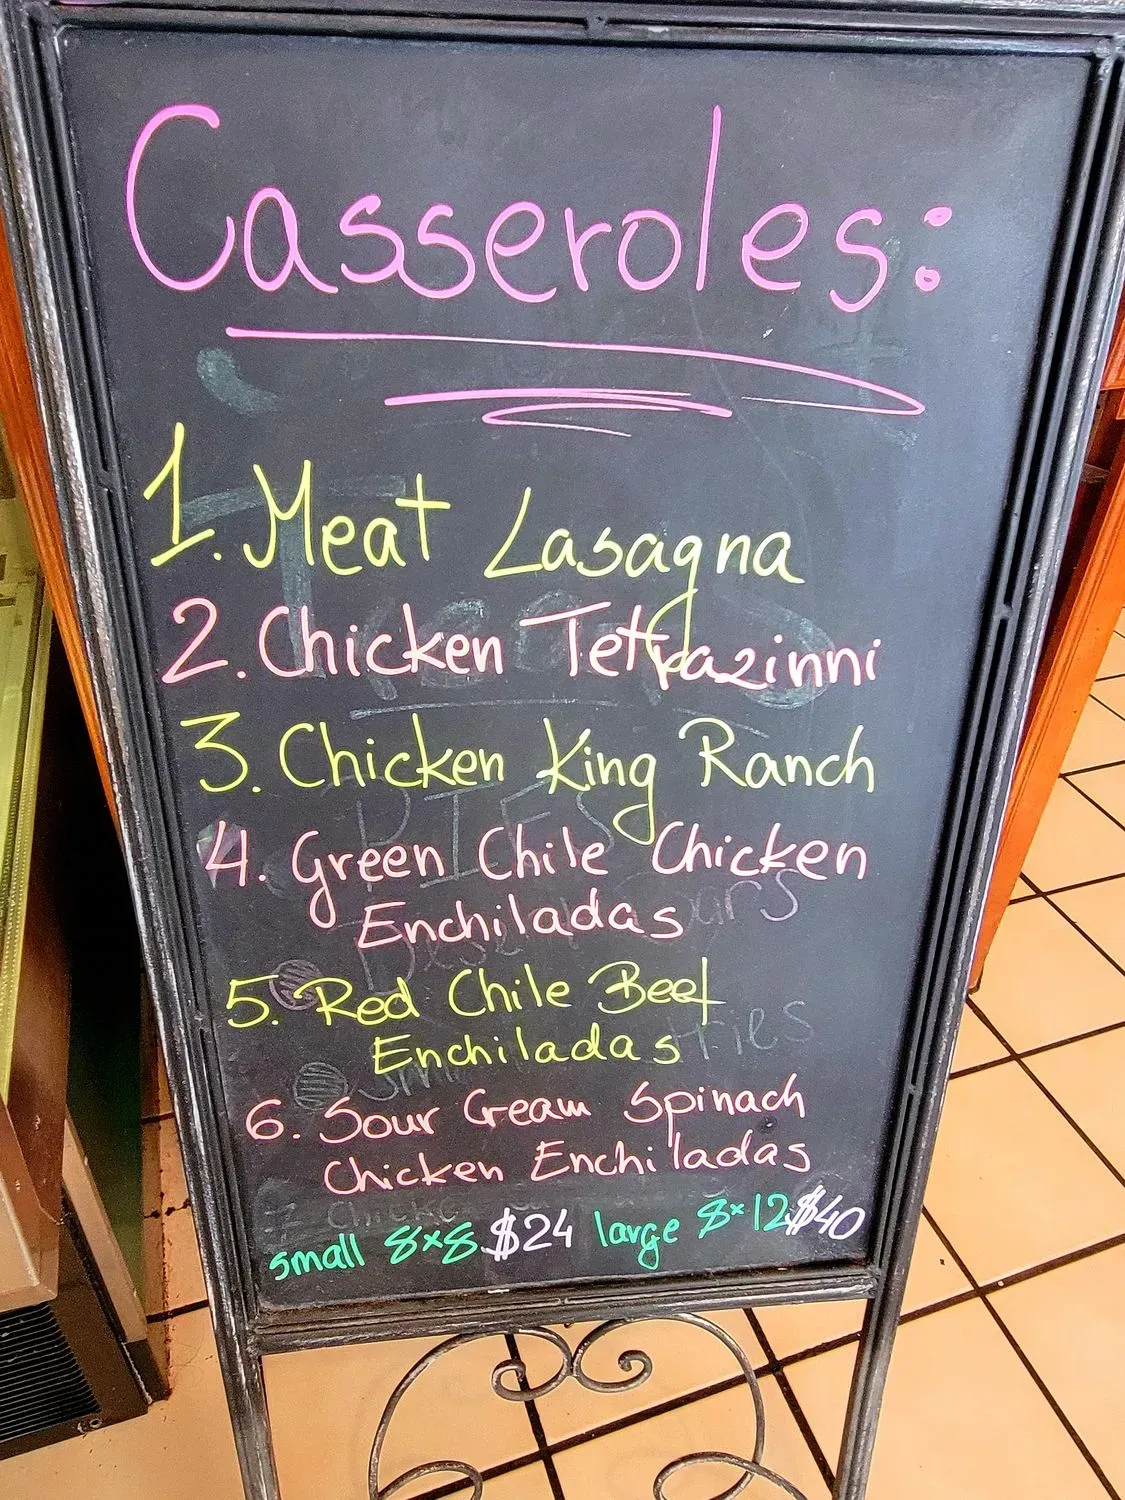 Casseroles:
1. Meat Lasagna
2. Chicken Tettrazinni
3. Chicken King Ranch
4. Green Chile Chicken
Enchiladas
5. Red Chile Beef
Enchiladas
6. Sour Cream Spinach
Chicken Enchiladas
small 8x8 $24 large 8x12 $40